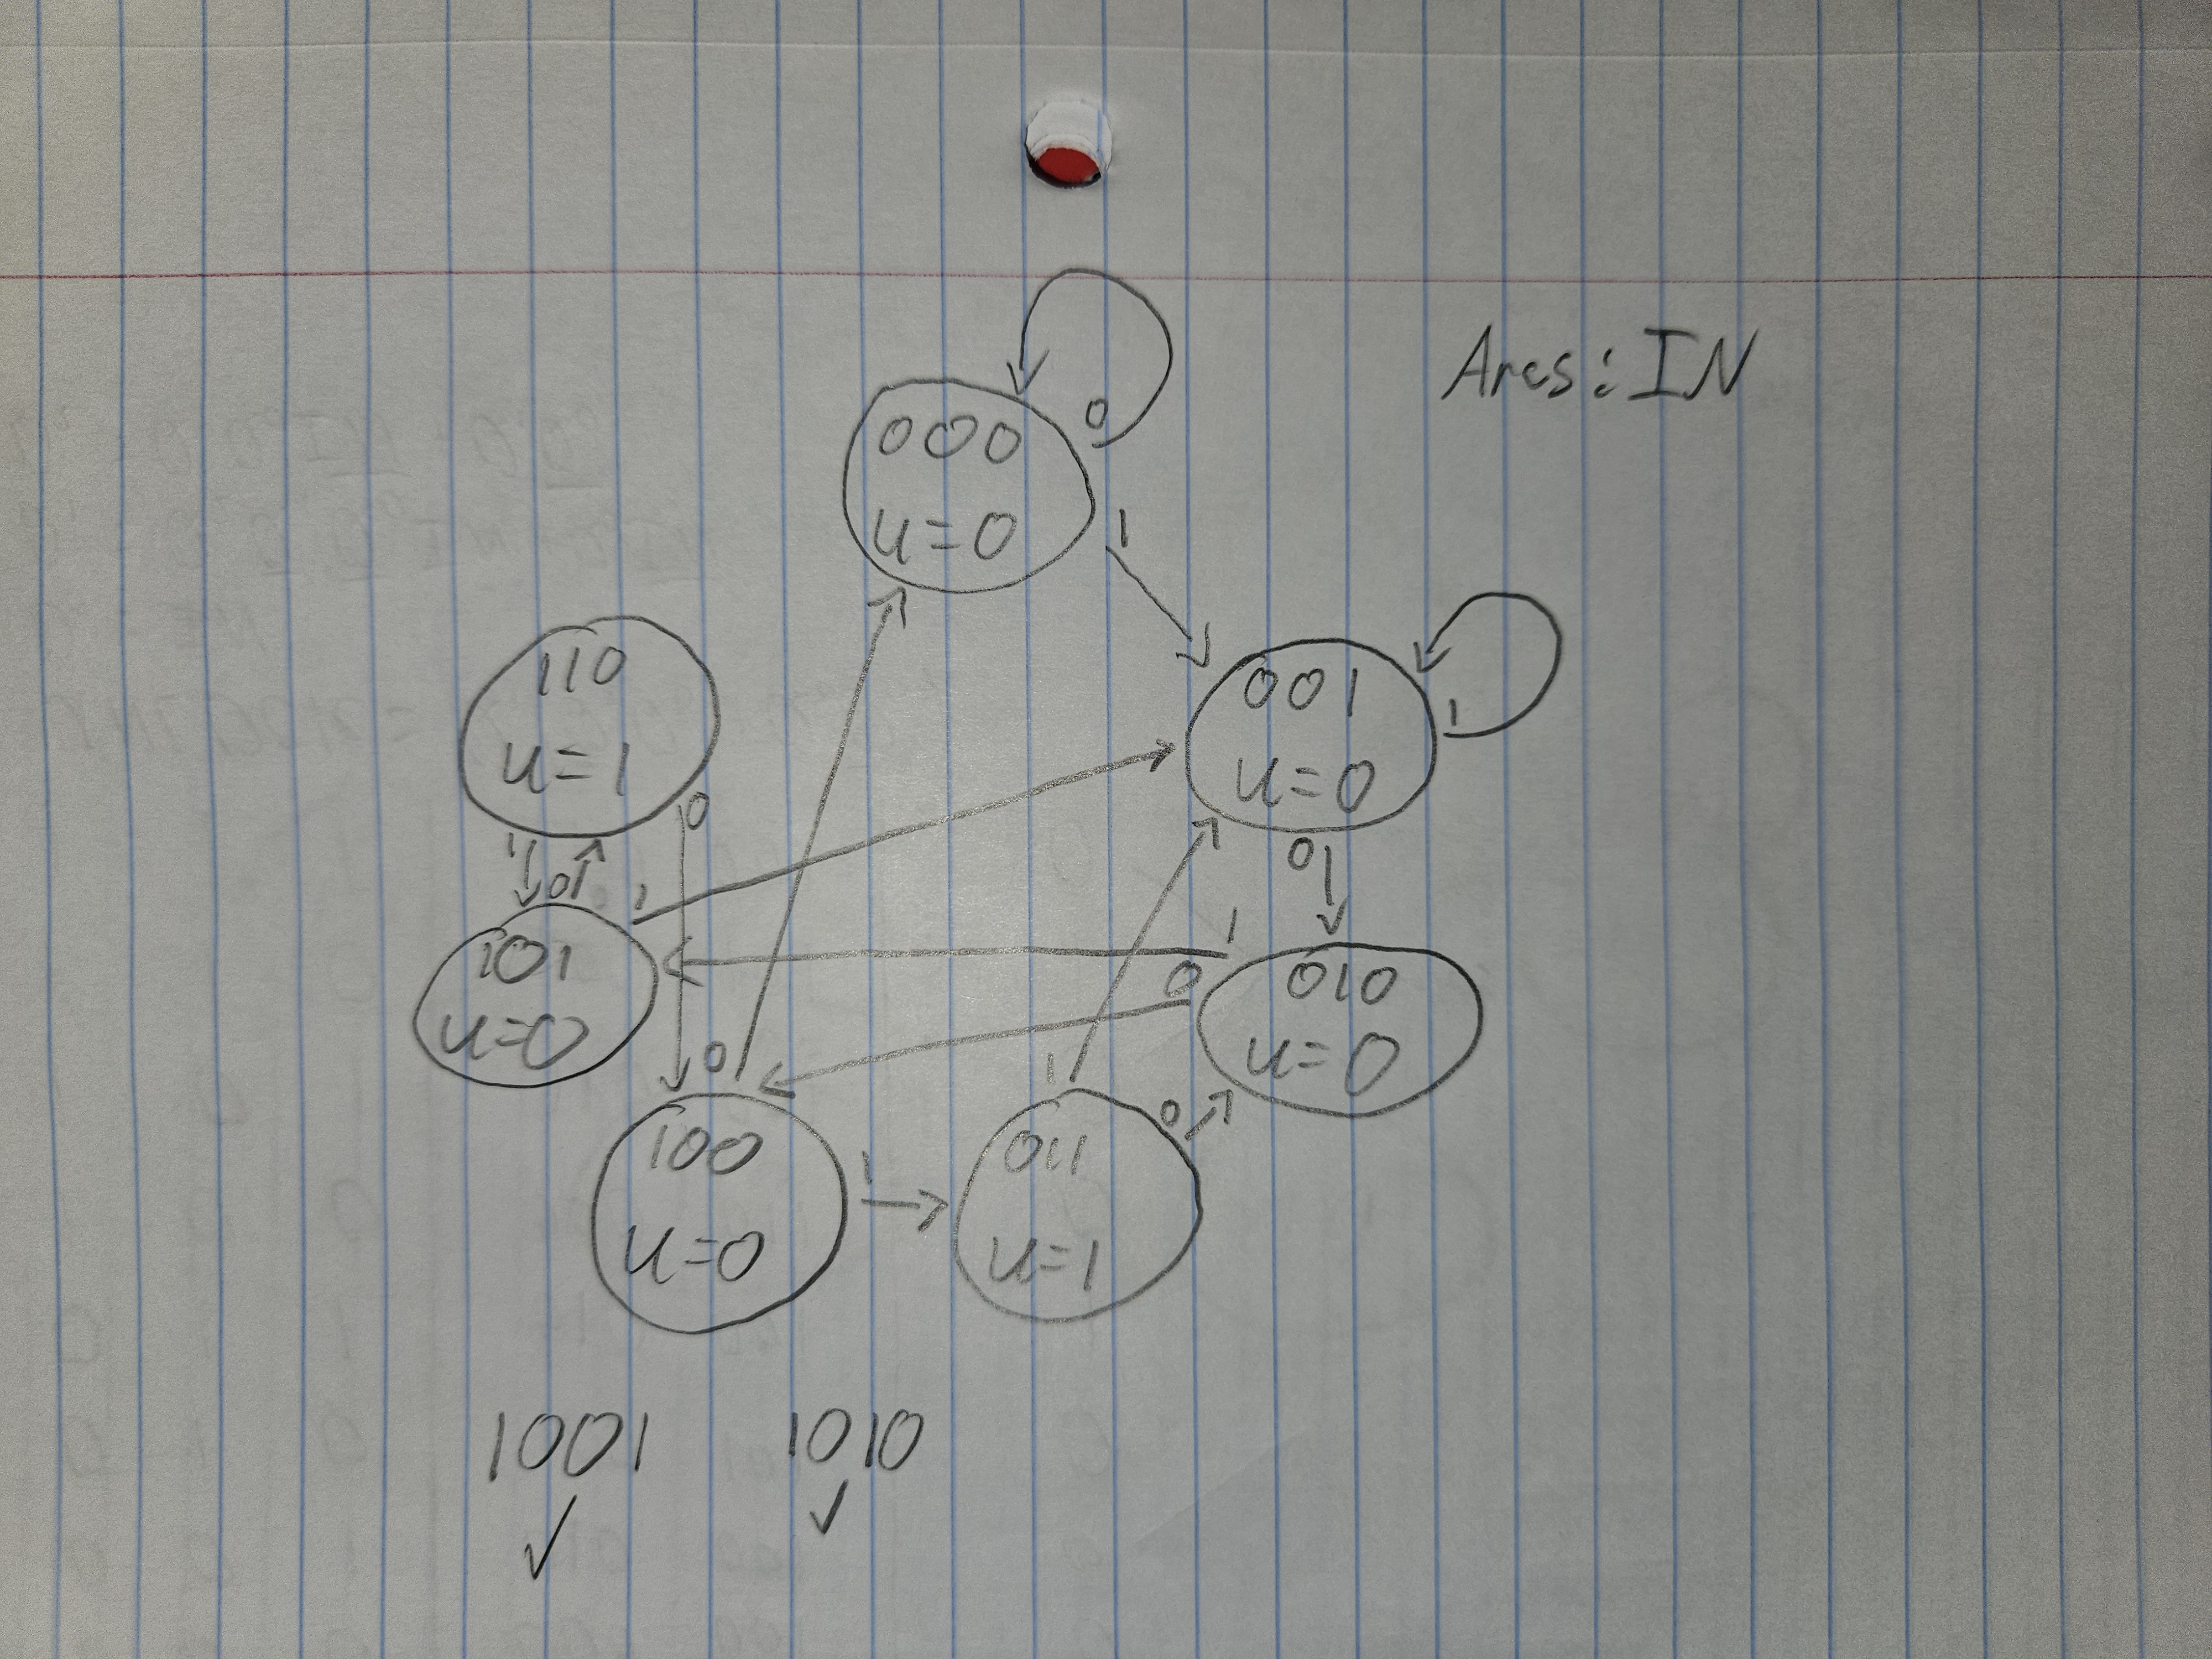 Arcs: IN
0
000
u=0
1
110
u=1
0
001
u=0
1
1
0
1
0
101
u=0
1
0
010
u=0
0
100
u=0
1
1
011
u=1
0
1001
1010
✓
✓